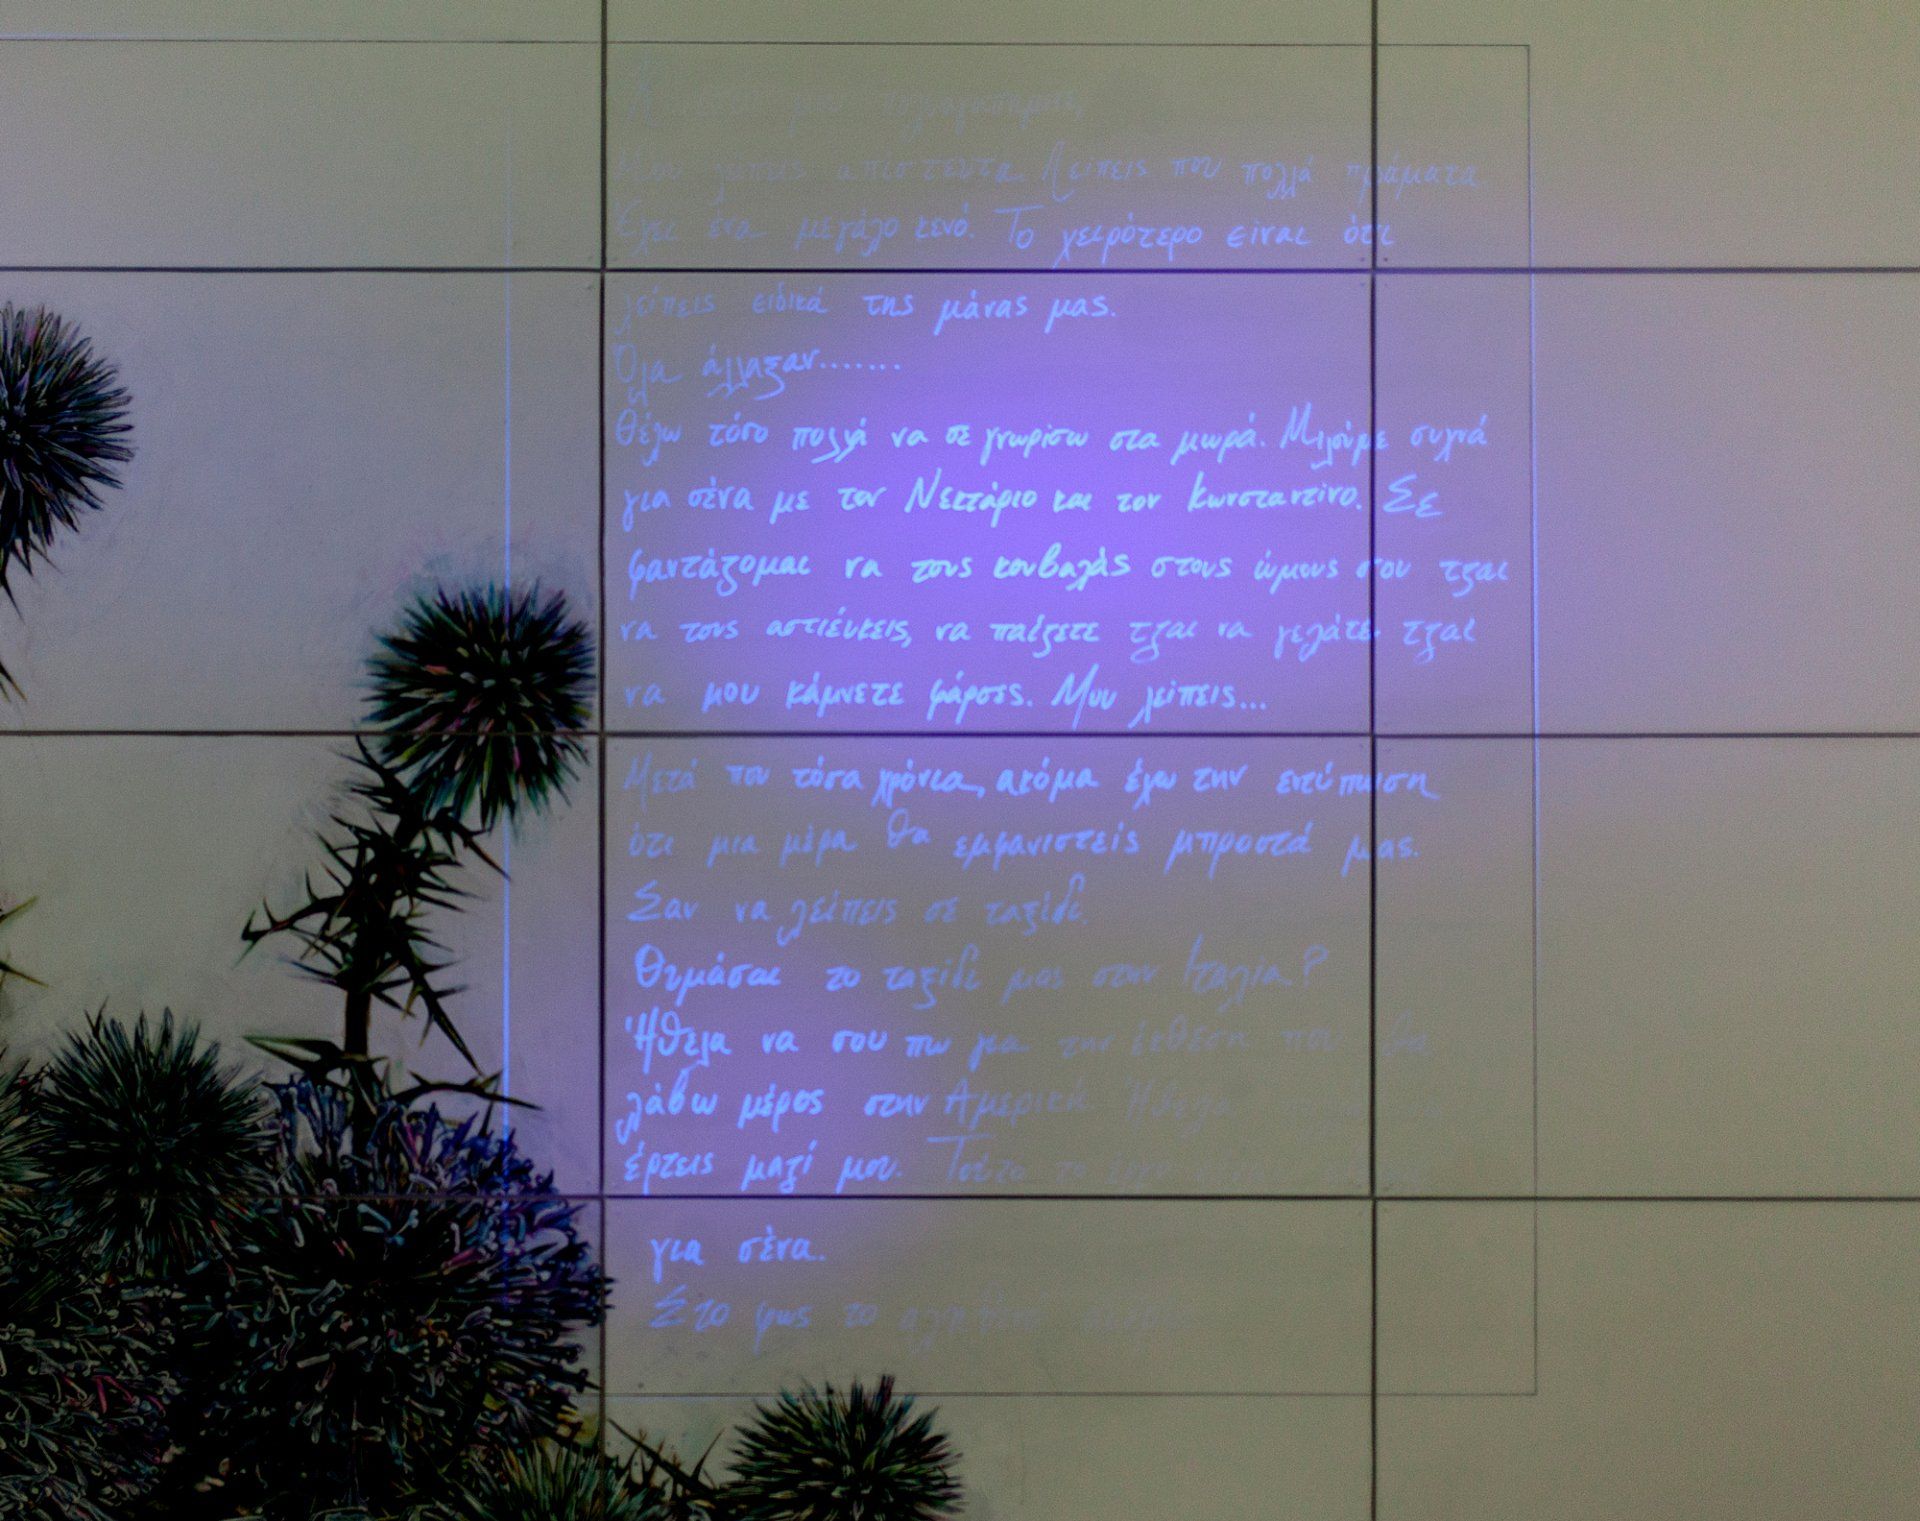 μου πολυαγαπημένε,
Μου λείπεις απίστευτα. Λείπεις που πολλά πράματα
Έχει ένα μεγάλο κενό. Το χειρότερο είναι ότι
λείπεις ειδικά της μάνας μας.
Όλα άλλαξαν.......
Θέλω τόσο πολλά να σε γνωρίσω στα μωρά. Μιλούμε συχνά
για σένα με τον Νεκτάριο και τον Κωνσταντίνο. Σε
φαντάζομαι να τους κουβαλάς στους ώμους σου τζαι
να τους αστιέυκεις, να παίζετε τζαι να γελάτε τζαι
να μου κάμνετε φάρσες. Μου λείπεις...
Μετά που τόσα χρόνια, ακόμα έχω την εντύπωση
ότι μια μέρα θα εμφανιστείς μπροστά μας.
Σαν να λείπεις σε ταξίδι.
Θυμάσαι το ταξίδι μας στην Ιταλία?
Ήθελα να σου πω για την έκθεση που θα
λάβω μέρος στην Αμερική Ήθελα
έρτεις μαζί μου. Τούτο το έργο
για σένα.
Στο φως το